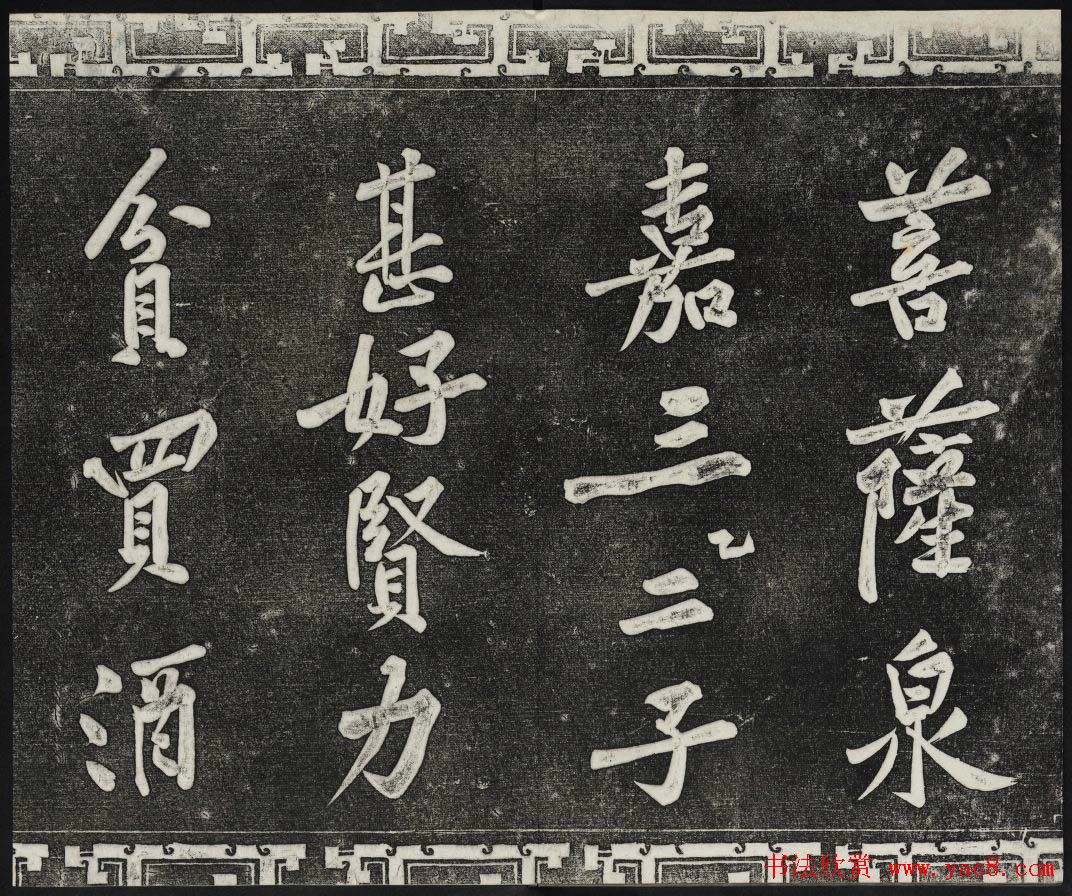 菩薩泉
嘉三二子
甚好賢力
貧買酒
书法欣赏 www.yac8.com